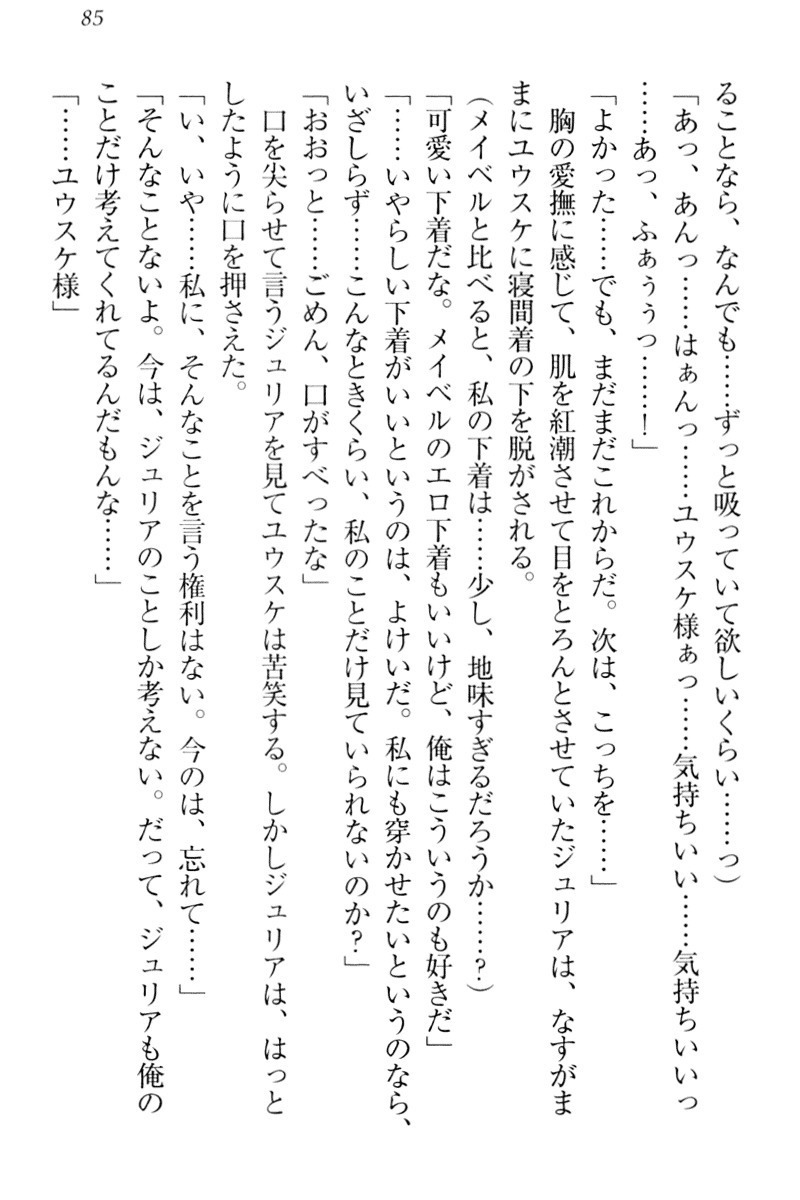 85
ることなら、なんでも……ずっと吸っていて欲しいくらい……っ）
「あっ、あんっ……はぁんっ……ユウスケ様ぁっ……気持ちいい……気持ちいいっ
……あっ、ふぁぅぅっ……！」
「よかった……でも、まだまだこれからだ。次は、こっちを……」
　胸の愛撫に感じて、肌を紅潮させて目をとろんとさせていたジュリアは、なすがま
まにユウスケに寝間着の下を脱がされる。
（メイベルと比べると、私の下着は……少し、地味すぎるだろうか……？）
「可愛い下着だな。メイベルのエロ下着もいいけど、俺はこういうのも好きだ」
「……いやらしい下着がいいというのは、よけいだ。私にも穿かせたいというのなら、
いざしらず……こんなときくらい、私のことだけ見ていられないのか？」
「おおっと……ごめん、口がすべったな」
　口を尖らせて言うジュリアを見てユウスケは苦笑する。しかしジュリアは、はっと
したように口を押さえた。
「い、いや……私に、そんなことを言う権利はない。今のは、忘れて……」
「そんなことないよ。今は、ジュリアのことしか考えない。だって、ジュリアも俺の
ことだけ考えてくれてるんだもんな……」
「……ユウスケ様」